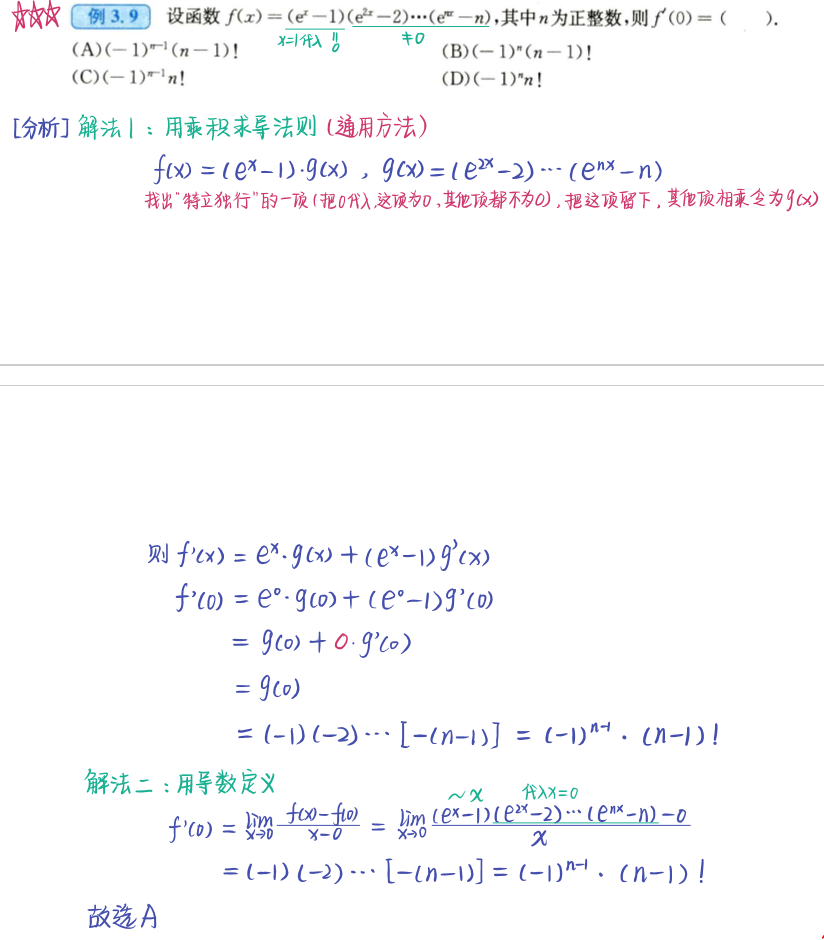 ☆☆☆ 例 3.9 设函数 f(x)=(eˣ-1)(e²ˣ-2)⋯(eⁿˣ-n),其中n为正整数,则 f'(0)=( ).
x=1代入 = 0 ≠0
(A)(-1)ⁿ⁻¹(n-1)! (B)(-1)ⁿ(n-1)!
(C)(-1)ⁿ⁻¹n! (D)(-1)ⁿn!
[分析] 解法1：用乘积求导法则(通用方法)
f(x)=(eˣ-1)·g(x)，g(x)=(e²ˣ-2)⋯(eⁿˣ-n)
找出"特立独行"的一项(把0代入,这项为0,其他项都不为0),把这项留下,其他项相乘令为g(x)
则 f'(x)=eˣ·g(x)+(eˣ-1)g'(x)
f'(0)=e⁰·g(0)+(e⁰-1)g'(0)
=g(0)+0·g'(0)
=g(0)
=(-1)(-2)⋯[-(n-1)]=(-1)ⁿ⁻¹·(n-1)!
解法二：用导数定义
~x 代入x=0
f'(0)=lim x→0 f(x)-f(0) / x-0 = lim x→0 (eˣ-1)(e²ˣ-2)⋯(eⁿˣ-n)-0 / x
=(-1)(-2)⋯[-(n-1)]=(-1)ⁿ⁻¹·(n-1)!
故选A